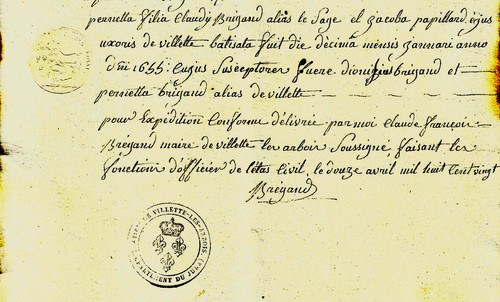 pernetta filia Claudÿ Brigand alias le Sage et Jacoba papillard ejus
uxoris de villette batisata fuit die decima mensis Januari anno
Dñi 1655. Cujus Susceptores fuere dionisius brigand et
pernetta brigand alias de villette
pour Expédition Conforme délivrée par moi Claude françois
Brégand maire de villette les arbois Soussigné, faisant les
fonctions d'officier de l'état Civil, le douze avril mil huit Cent vingt
Brégand
MAIRIE DE VILLETTE-LES-ARBOIS
DÉPARTEMENT DU JURA